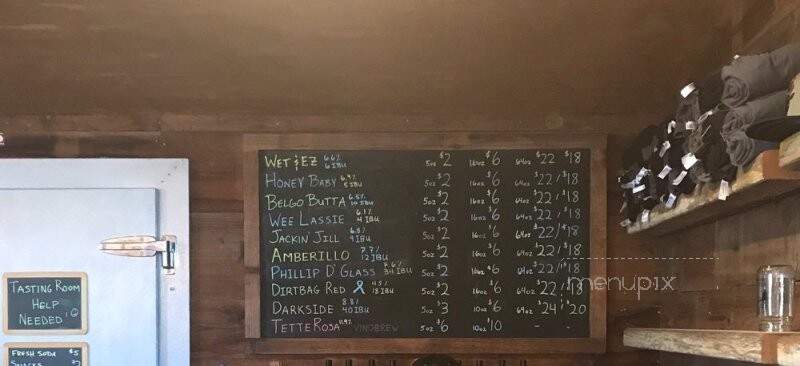 WET & EZ 6.6% 6 IBU 5oz $2 16oz $6 64oz $22 / $18
HONEY BABY 6.9% 5 IBU 5oz $2 16oz $6 64oz $22 / $18
BELGO BUTTA 6.8% 10 IBU 5oz $2 16oz $6 64oz $22 / $18
WEE LASSIE 6.1% 4 IBU 5oz $2 16oz $6 64oz $22 / $18
JACKIN' JILL 6.8% 9 IBU 5oz $2 16oz $6 64oz $22 / $18
AMBERILLO 7.7% 12 IBU 5oz $2 16oz $6 64oz $22 / $18
PHILLIP D' GLASS 34 IBU 5oz $2 16oz $6 64oz $22 / $18
DIRTBAG RED 18 IBU 5oz $2 16oz $6 64oz $22 / $18
DARKSIDE 8.8% 40 IBU 5oz $3 10oz $6 64oz $24 / $20
TETTEROSA 11.9% VINOBREW 5oz $6 10oz $10 - -
TASTING ROOM
HELP
NEEDED!
FRESH SODA $5
SNACKS
menupix